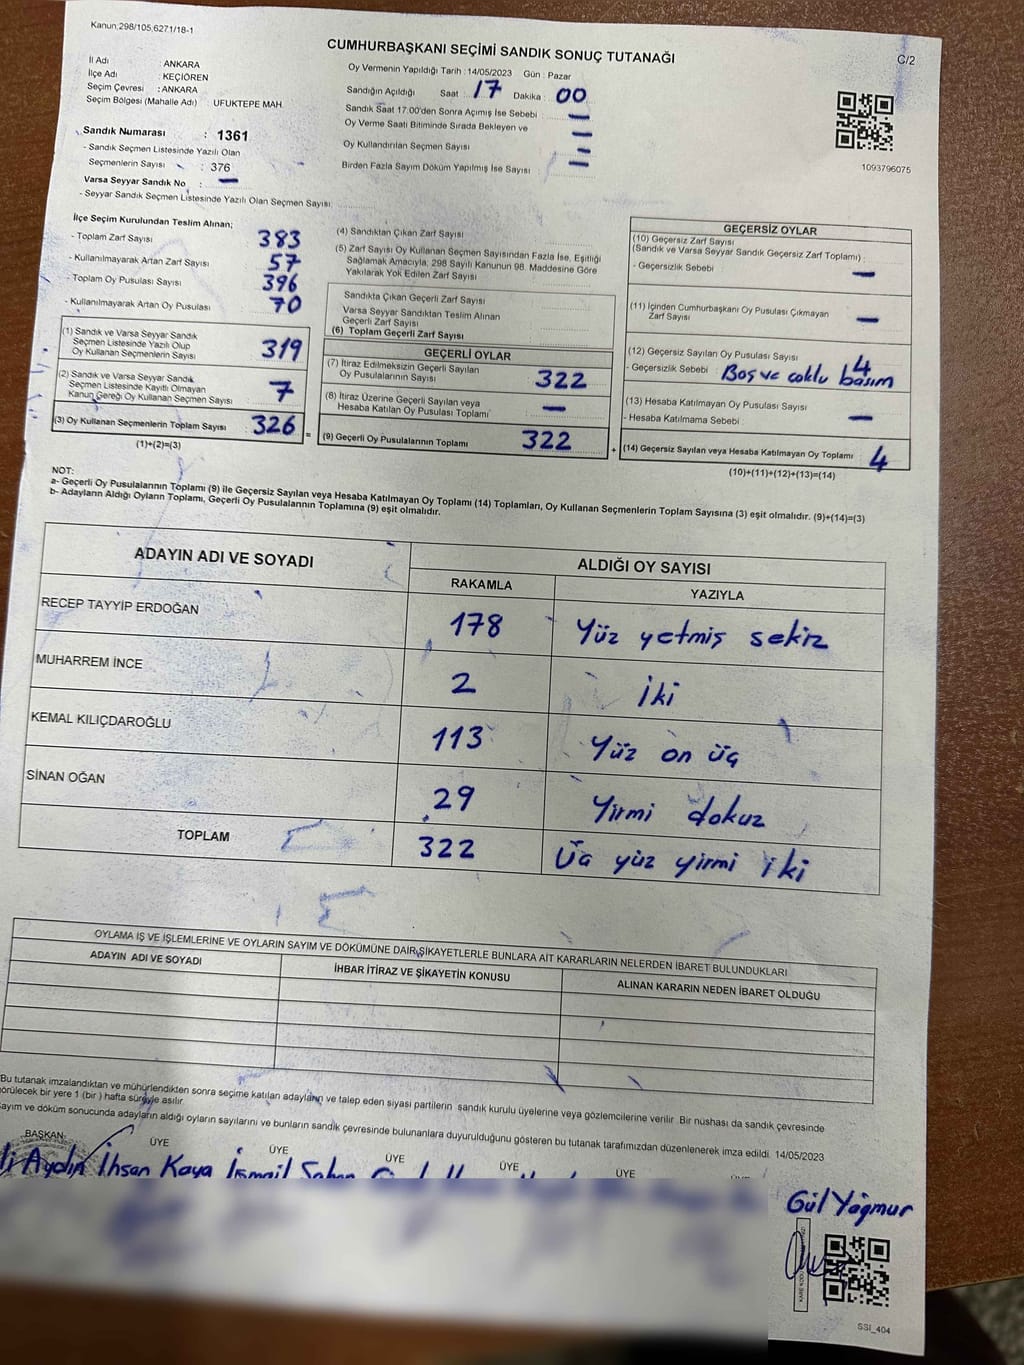 Kanun:298/105,6271/18-1
CUMHURBAŞKANI SEÇİMİ SANDIK SONUÇ TUTANAĞI
C/2
İl Adı ANKARA
İlçe Adı KEÇİÖREN
Seçim Çevresi : ANKARA
Seçim Bölgesi (Mahalle Adı) UFUKTEPE MAH
Sandık Numarası : 1361
- Sandık Seçmen Listesinde Yazılı Olan
Seçmenlerin Sayısı : 376
Varsa Seyyar Sandık No : —
- Seyyar Sandık Seçmen Listesinde Yazılı Olan Seçmen Sayısı:
Oy Vermenin Yapıldığı Tarih : 14/05/2023 Gün : Pazar
Sandığın Açıldığı Saat : 17 Dakika : 00
Sandık Saat 17:00'den Sonra Açımış İse Sebebi —
Oy Verme Saati Bitiminde Sırada Bekleyen ve —
Oy Kullandırılan Seçmen Sayısı —
Birden Fazla Sayım Döküm Yapılmış İse Sayısı —
1093796075
İlçe Seçim Kurulundan Teslim Alınan;
- Toplam Zarf Sayısı 383
- Kullanılmayarak Artan Zarf Sayısı 57
- Toplam Oy Pusulası Sayısı 396
- Kullanılmayarak Artan Oy Pusulası 70
(1) Sandık ve Varsa Seyyar Sandık
Seçmen Listesinde Yazılı Olup
Oy Kullanan Seçmenlerin Sayısı 319
(2) Sandık ve Varsa Seyyar Sandık
Seçmen Listesinde Kayıtlı Olmayan
Kanun Gereği Oy Kullanan Seçmen Sayısı 7
(3) Oy Kullanan Seçmenlerin Toplam Sayısı 326 =
(1)+(2)=(3)
(4) Sandıktan Çıkan Zarf Sayısı
(5) Zarf Sayısı Oy Kullanan Seçmen Sayısından Fazla İse, Eşitliği
Sağlamak Amacıyla; 298 Sayılı Kanunun 98. Maddesine Göre
Yakılarak Yok Edilen Zarf Sayısı
Sandıkta Çıkan Geçerli Zarf Sayısı
Varsa Seyyar Sandıktan Teslim Alınan
Geçerli Zarf Sayısı
(6) Toplam Geçerli Zarf Sayısı
GEÇERLİ OYLAR
(7) İtiraz Edilmeksizin Geçerli Sayılan
Oy Pusulalarının Sayısı 322
(8) İtiraz Üzerine Geçerli Sayılan veya
Hesaba Katılan Oy Pusulası Toplamı —
(9) Geçerli Oy Pusulalarının Toplamı 322 +
GEÇERSİZ OYLAR
(10) Geçersiz Zarf Sayısı
(Sandık ve Varsa Seyyar Sandık Geçersiz Zarf Toplamı) :
- Geçersizlik Sebebi : —
(11) İçinden Cumhurbaşkanı Oy Pusulası Çıkmayan
Zarf Sayısı —
(12) Geçersiz Sayılan Oy Pusulası Sayısı 4
- Geçersizlik Sebebi Boş ve çoklu basım
(13) Hesaba Katılmayan Oy Pusulası Sayısı
- Hesaba Katılmama Sebebi : —
(14) Geçersiz Sayılan veya Hesaba Katılmayan Oy Toplamı 4
(10)+(11)+(12)+(13)=(14)
NOT:
a- Geçerli Oy Pusulalarının Toplamı (9) ile Geçersiz Sayılan veya Hesaba Katılmayan Oy Toplamı (14) Toplamları, Oy Kullanan Seçmenlerin Toplam Sayısına (3) eşit olmalıdır. (9)+(14)=(3)
b- Adayların Aldığı Oyların Toplamı, Geçerli Oy Pusulalarının Toplamına (9) eşit olmalıdır.
ADAYIN ADI VE SOYADI ALDIĞI OY SAYISI
RAKAMLA YAZIYLA
RECEP TAYYİP ERDOĞAN 178 Yüz yetmiş sekiz
MUHARREM İNCE 2 İki
KEMAL KILIÇDAROĞLU 113 Yüz on üç
SİNAN OĞAN 29 Yirmi dokuz
TOPLAM 322 Üç yüz yirmi iki
OYLAMA İŞ VE İŞLEMLERİNE VE OYLARIN SAYIM VE DÖKÜMÜNE DAİR ŞİKAYETLERLE BUNLARA AİT KARARLARIN NELERDEN İBARET BULUNDUKLARI
ADAYIN ADI VE SOYADI İHBAR İTİRAZ VE ŞİKAYETİN KONUSU ALINAN KARARIN NEDEN İBARET OLDUĞU
Bu tutanak imzalandıktan ve mühürlendikten sonra seçime katılan adayların ve talep eden siyasi partilerin sandık kurulu üyelerine veya gözlemcilerine verilir. Bir nüshası da sandık çevresinde
görülecek bir yere 1 (bir) hafta süreyle asılır.
Sayım ve döküm sonucunda adayların aldığı oyların sayılarını ve bunların sandık çevresinde bulunanlara duyurulduğunu gösteren bu tutanak tarafımızdan düzenlenerek imza edildi. 14/05/2023
BAŞKAN ÜYE ÜYE ÜYE ÜYE ÜYE ÜYE
Aydın İhsan Kaya İsmail
Gül Yağmur
SSI_404